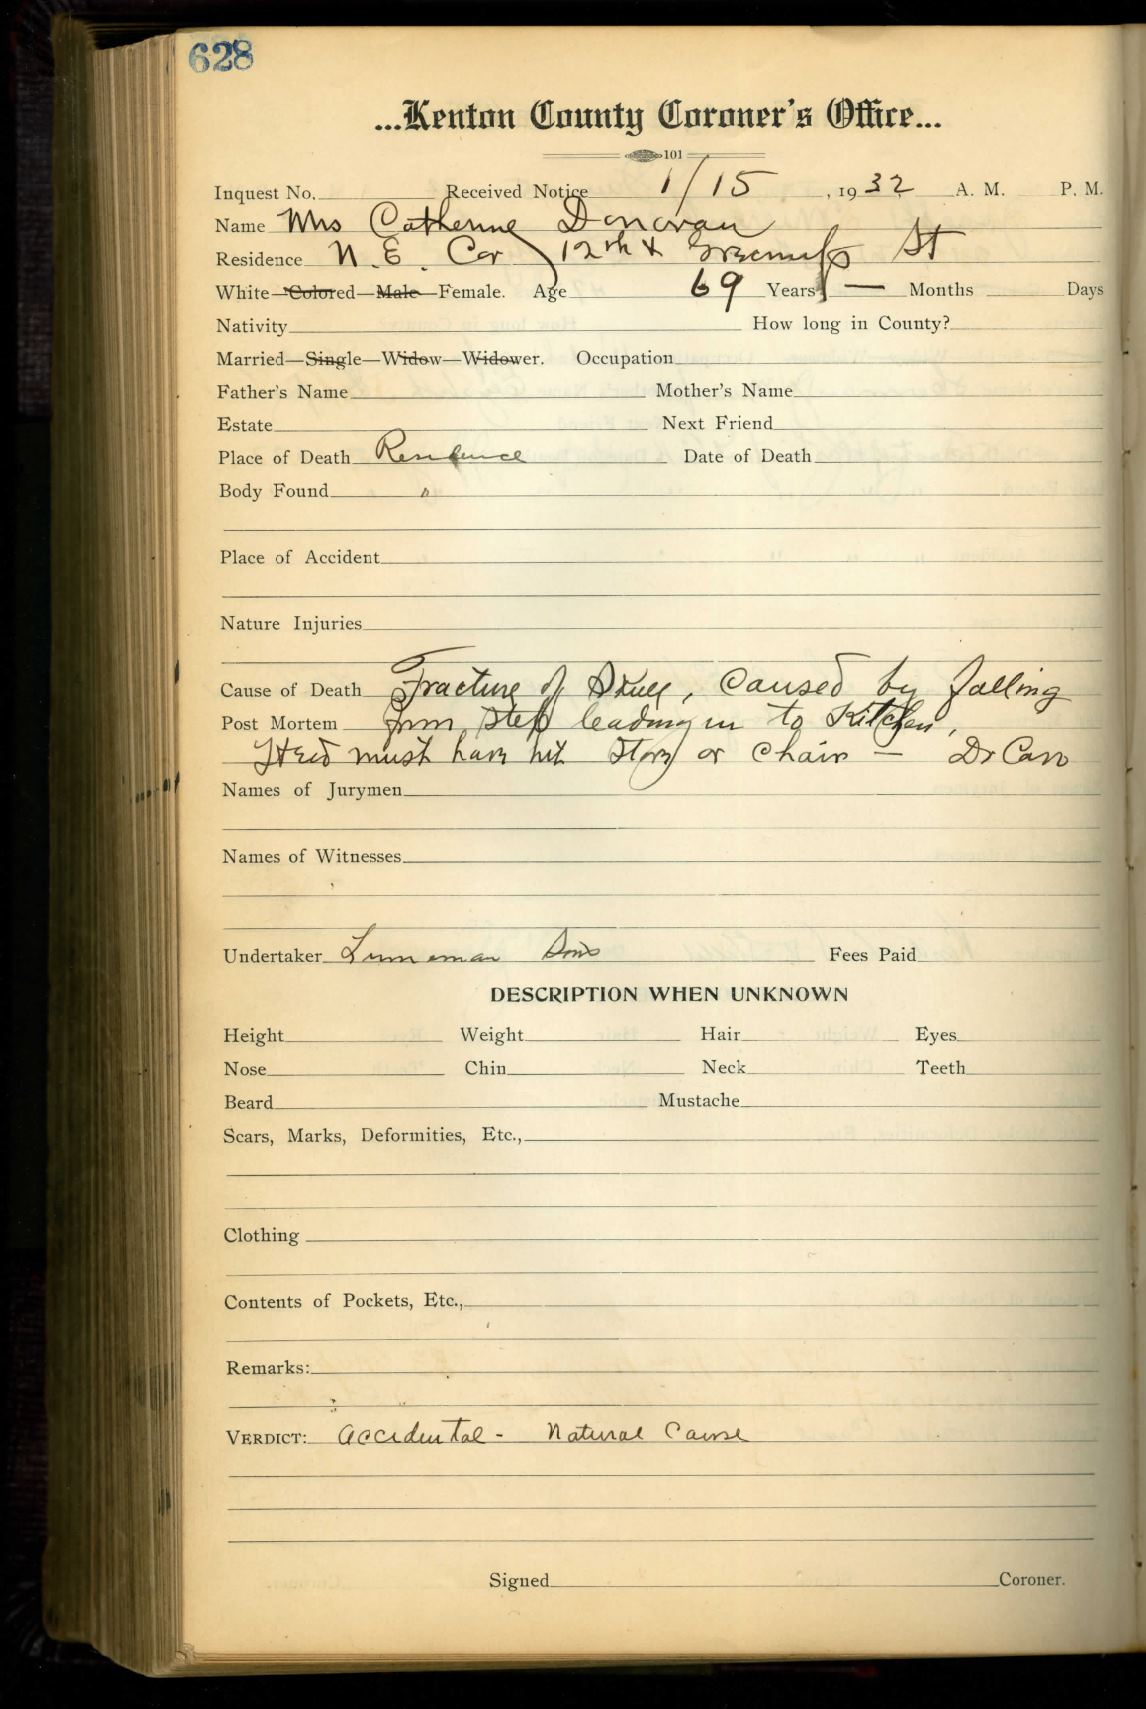 628
...Kenton County Coroner's Office...
101
Inquest No. Received Notice 1/15, 1932 A. M. P. M.
Name Mrs Catherine Donovan
Residence N. E. Cor 12th & Greenup St
White—Colored—Male—Female. Age 69 Years — Months Days
Nativity How long in County?
Married—Single—Widow—Widower. Occupation
Father's Name Mother's Name
Estate Next Friend
Place of Death Residence Date of Death
Body Found "
Place of Accident
Nature Injuries
Cause of Death Fracture of Skull, Caused by falling
Post Mortem from step leading in to Kitchen,
Head must have hit Stove or Chair — Dr Carr
Names of Jurymen
Names of Witnesses
Undertaker Linneman Sons Fees Paid
DESCRIPTION WHEN UNKNOWN
Height Weight Hair Eyes
Nose Chin Neck Teeth
Beard Mustache
Scars, Marks, Deformities, Etc.,
Clothing
Contents of Pockets, Etc.,
Remarks:
VERDICT: Accidental - Natural Cause
Signed Coroner.